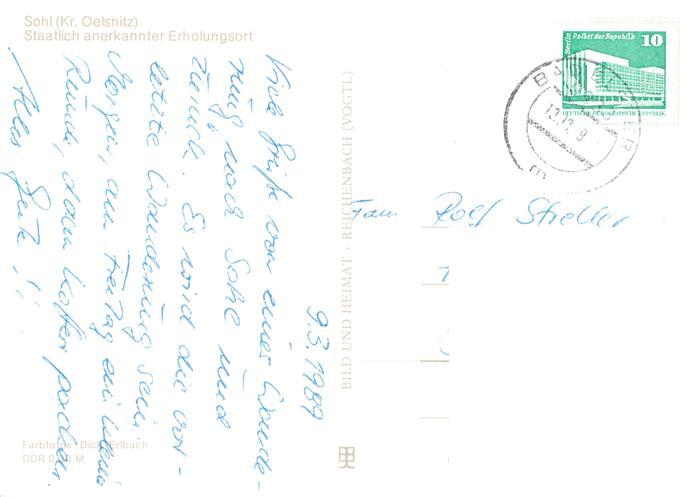 Sohl (Kr. Oelsnitz)
Staatlich anerkannter Erholungsort
9.3.1989
Viele Grüße von einer Wande-
rung nach Sohl und
zurück. Es wird die vor-
letzte Wanderung sein.
Morgen, am Freitag ein kleine
Runde, dann Koffer packen.
Alles Gute!!
Farbfotos: Dick, Erlbach
DDR M
BILD UND HEIMAT · REICHENBACH (VOGTL)
Berlin Palast der Republik
10
DEUTSCHE DEMOKRATISCHE REPUBLIK
Fam Rolf Streller